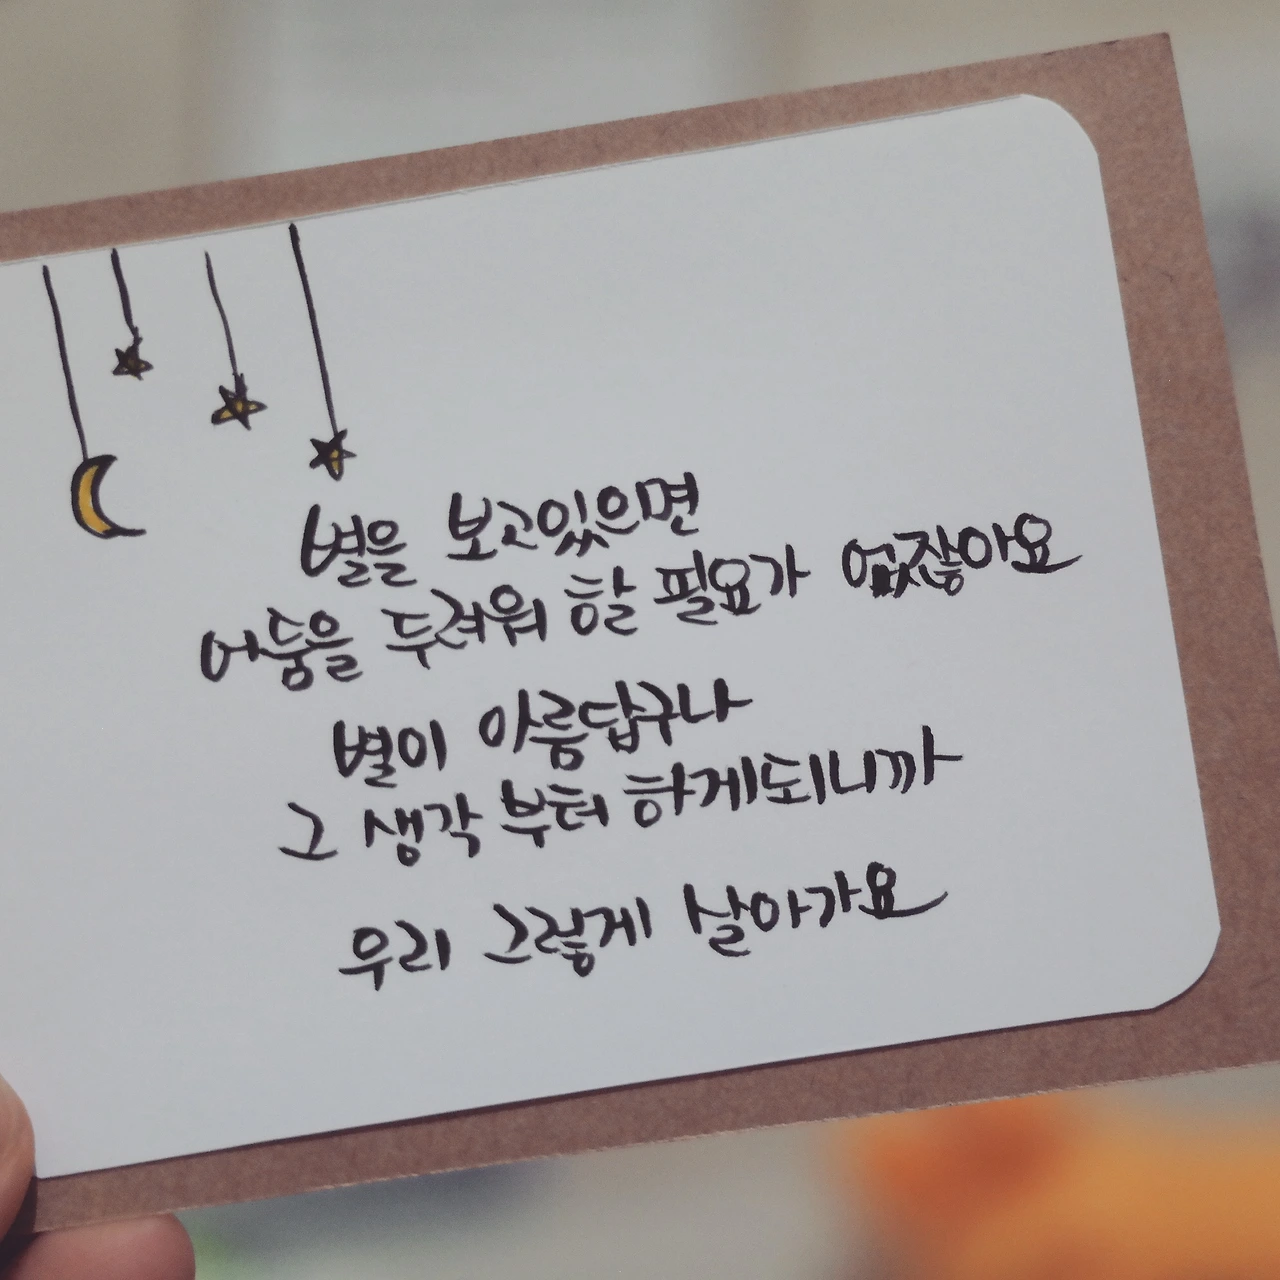 별을 보고있으면
어둠을 두려워 할 필요가 없잖아요
별이 아름답구나
그 생각 부터 하게되니까
우리 그렇게 살아가요